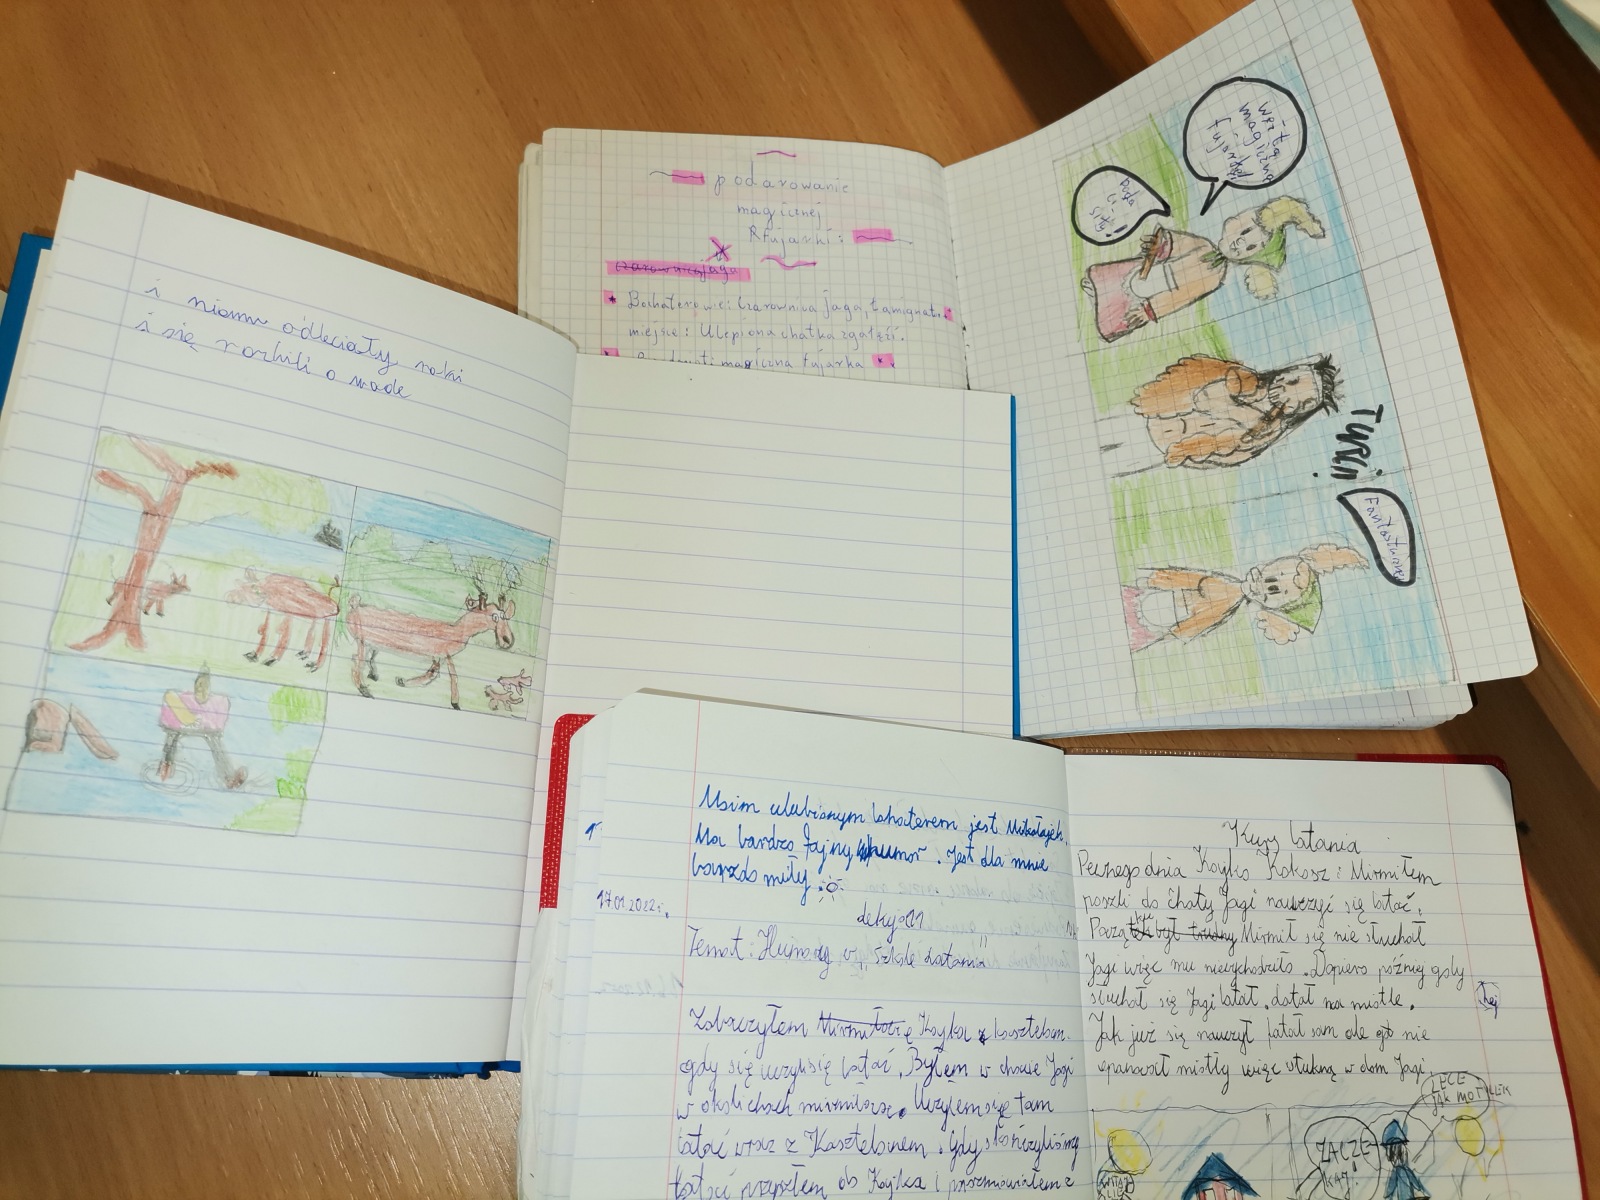 i niemu odleciały
i się rozbili o wode
podarowanie
magicznej
fujarki:
Bochaterowie: Czarownica Jaga, Łamignat.
miejsce: Ulepiona chatka z gałęzi.
magiczna fujarka
weź tą
magiczną
fujarkę
Doda
ci
siły!
Fantastycznie
Moim ulubionym bohaterem jest Mikołajek.
Ma bardzo fajny humor. Jest dla mnie
bardzo miły
17.01.2022r.
Temat: Humor w „Szkole latania"
Zobaczyłem Kajka z kasztelanem
gdy się uczyli się latać. Byłem w chacie Jagi
w okolicach mirmiłowa. Uczyłem się tam
latać wraz z Kasztelanem. Gdy skończyliśmy
latać do Kajka i
Kurs latania
Pewnego dnia Kajko Kokosz i Mirmiłem
poszli do chaty Jagi nauczyć się latać.
Początki był trudny Mirmił się nie słuchał
Jagi więc mu niewychodziło. Dopiero później gdy
słuchał się Jagi latał. Latał na miotle.
Jak już się nauczył latał sam ale nie
opanował miotły więc w dom Jagi.
hej
LECE
JAK MOTYLEK
ZACZE-
KAJ!
WITAJ